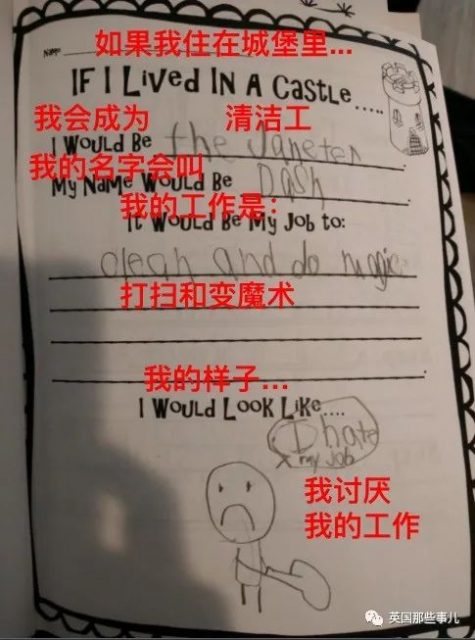 如果我住在城堡里...
Name
IF I LIVED IN A CASTLE.....
我会成为 清洁工
I WOULD BE the Janeter.
我的名字会叫
MY NAME WOULD BE Dash.
我的工作是:
IT WOULD BE MY JOB TO:
clean and do magic
打扫和变魔术
我的样子...
I WOULD LOOK LIKE....
I hate
my job
我讨厌
我的工作
英国那些事儿